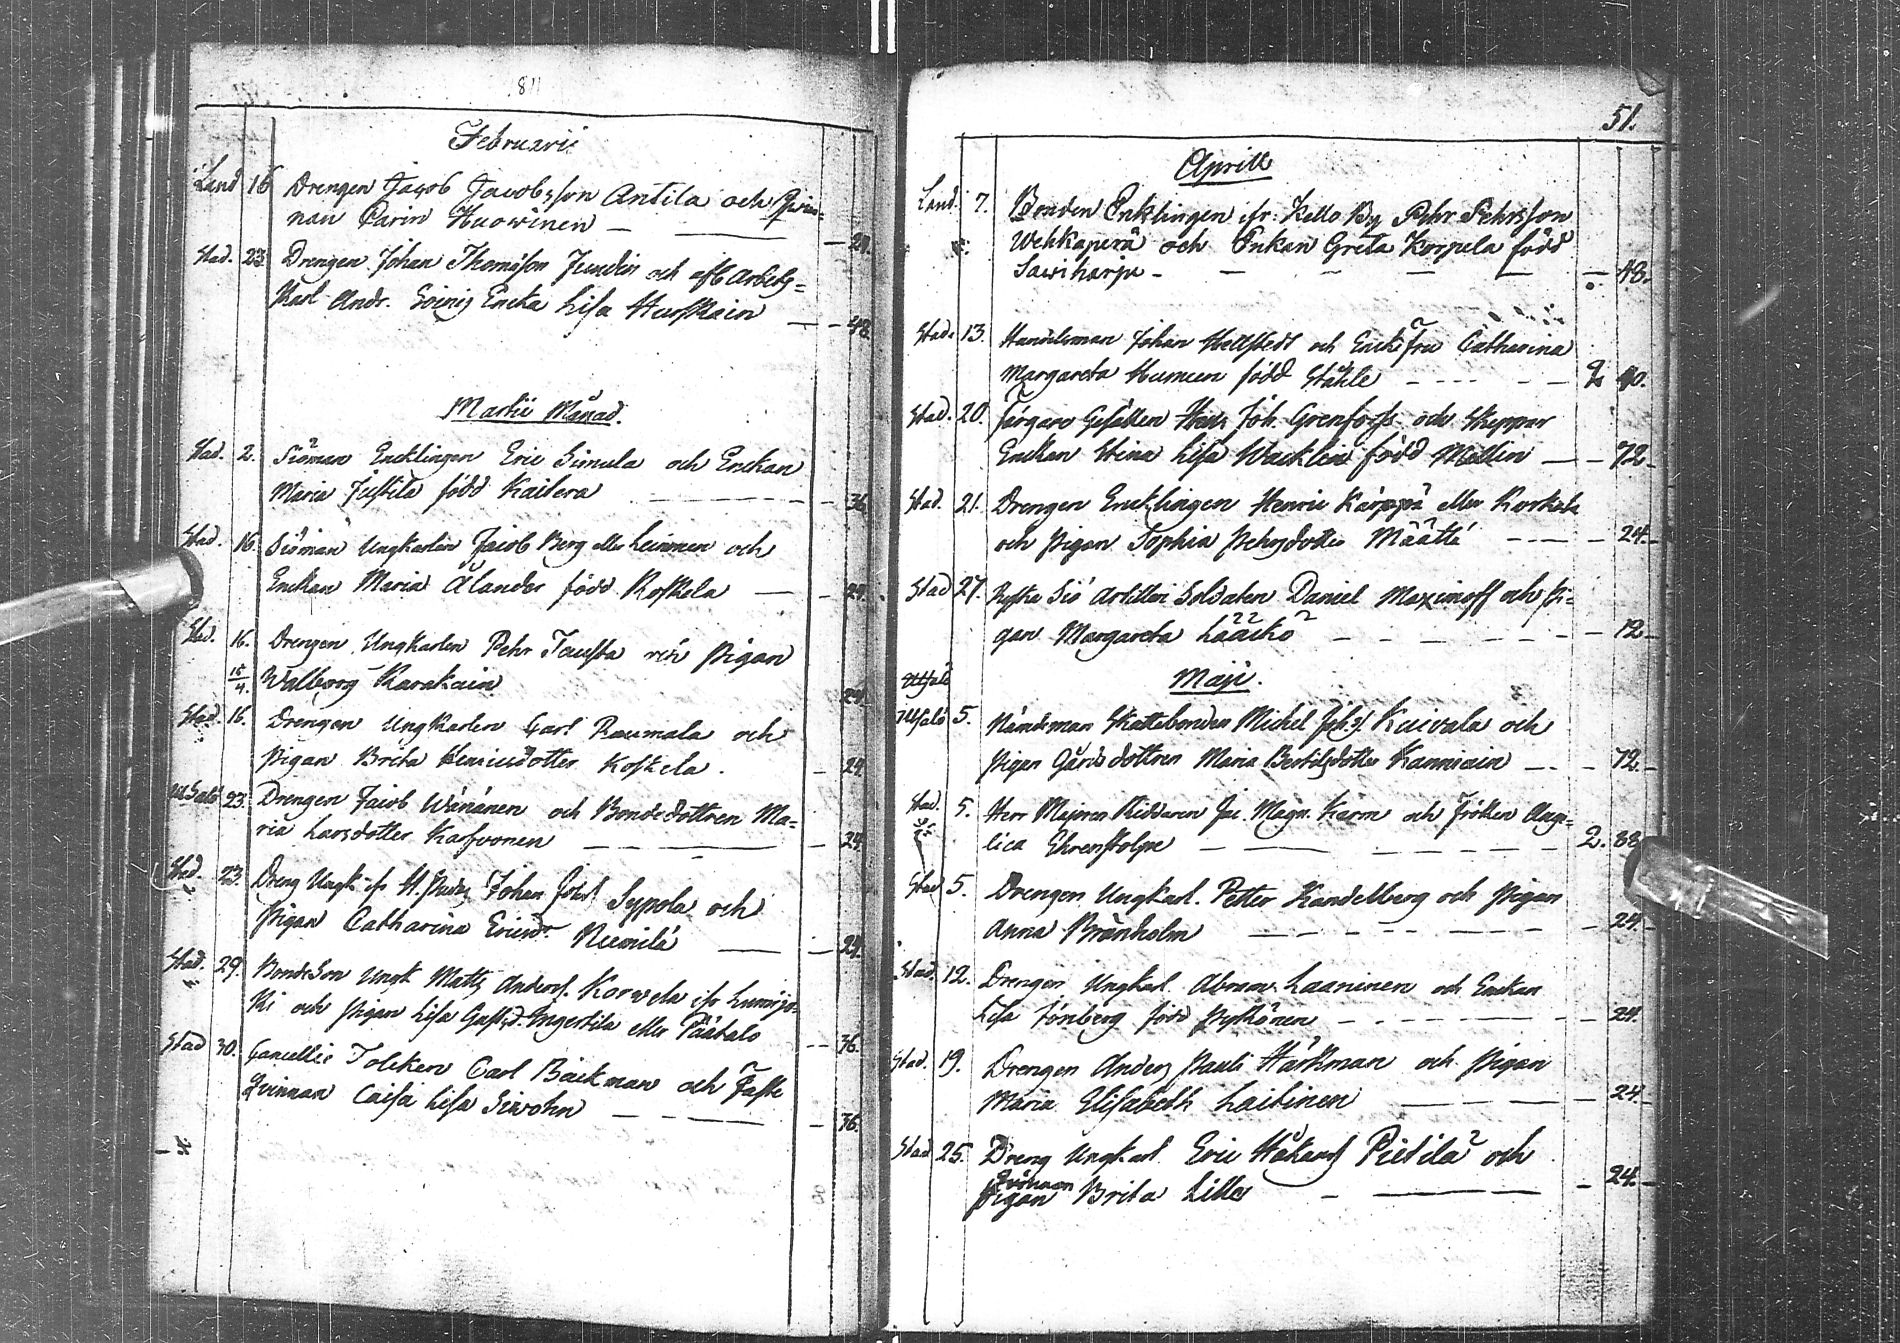 1811
Februarii
Land 16 Drengen Jacob Jacobsson Antila och Qvin=
nan Carin Huovinen — 24.
Stad. 23. Drengen Johan Thomsson Jundin och afl. Arbets=
Karl Andr. Enka Lisa — 48.
Martii Månad.
Stad. 2. Siöman Encklingen Eric Simula och Enckan
Maria född Kaitera — 36
Stad. 16. Siöman Ungkarlen Jacob Berg eller Leinonen och
Enckan Maria Ålander född Koskela — 24.
Stad. 16. Drengen Ungkarlen Pehr och Pigan
15/4. Walborg Karakain 24.
Stad. 16. Drengen Ungkarlen Carl Raumala och
Pigan Brita Henricsdotter Koskela. 24.
23. Drengen Jacob Wänänen och Bondedottren Ma=
ria Larsdotter Karfvonen — 24.
Stad. 23. Dreng Ungk. ifr Johan Joh. Sypola och
Pigan Catharina Ericsdr. Niemilä — 24.
Stad. 29. BondeSon Ungk Matts Anders. Korvela ifr Lumijo=
ki och Pigan Lisa Ingertila eller Päätalo — 36.
Stad 30. Cancellie Tolcken Carl Bäckman och
Qvinnan Caisa Lisa Siwohn — 36.
51.
Aprill
Land. 7. Bonden Enklingen ifr. Kello By Pehr Pehrsson
Wehkaperä och Enkan Greta Korpela född
Sawiharju — 48.
Stad. 13. Handelsman Johan Hellstedt och Enckefru Catharina
Margareta Human född Ståhle — 2 40.
Stad. 20. Färgare Gesällen Joh. Grenfors och Skeppar
Enckan Stina Lisa Wacklin född Mellin — 72.
Stad. 21. Drengen Encklingen Henric Kärppä eller Korkala
och Pigan Sophia Pehrsdotter Määttä — 24.
Stad 27. Ryska Siö Artilleri Soldaten Daniel Maximoff och Pi=
gan Margareta Lääckö — 12
Maji.
5. Nämdeman Skattebonden Michel Joh.s. Kuivala och
Pigan Gårdsdottren Maria Bertilsdotter Kanniain — 72.
Stad. 5. Herr Majoren Riddaren Jac. Magn. Karm och Fröken Ange=
lica Ehrenstolpe — 2. 88
Stad 5. Drengen Ungkarl. Petter Kandelberg och Pigan
Anna Bränholm — 24.
Stad. 12. Drengen Ungkarl. Abram Laaninen och Enckan
Lisa Törnberg född Pylkönen — 24.
Stad. 19. Drengen Anders Pauli Harkman och Pigan
Maria Elisabeth Laitinen — 24.
Stad 25. Dreng Ungkarl. Eric Håkans Pietilä och
Qvinnan
Pigan Brita Lilles — 24.